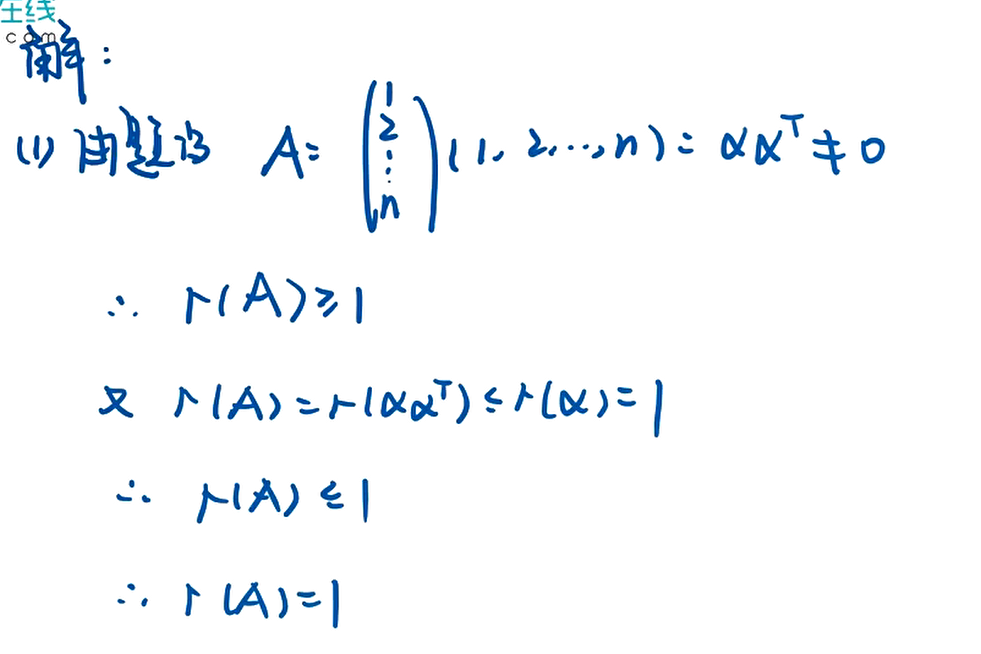 在线
com
解:
(1) 由题设 A = (1 2 ⋮ n) (1, 2, ..., n) = αα^T ≠ 0
∴ r(A) ≥ 1
又 r(A) = r(αα^T) ≤ r(α) = 1
∴ r(A) ≤ 1
∴ r(A) = 1